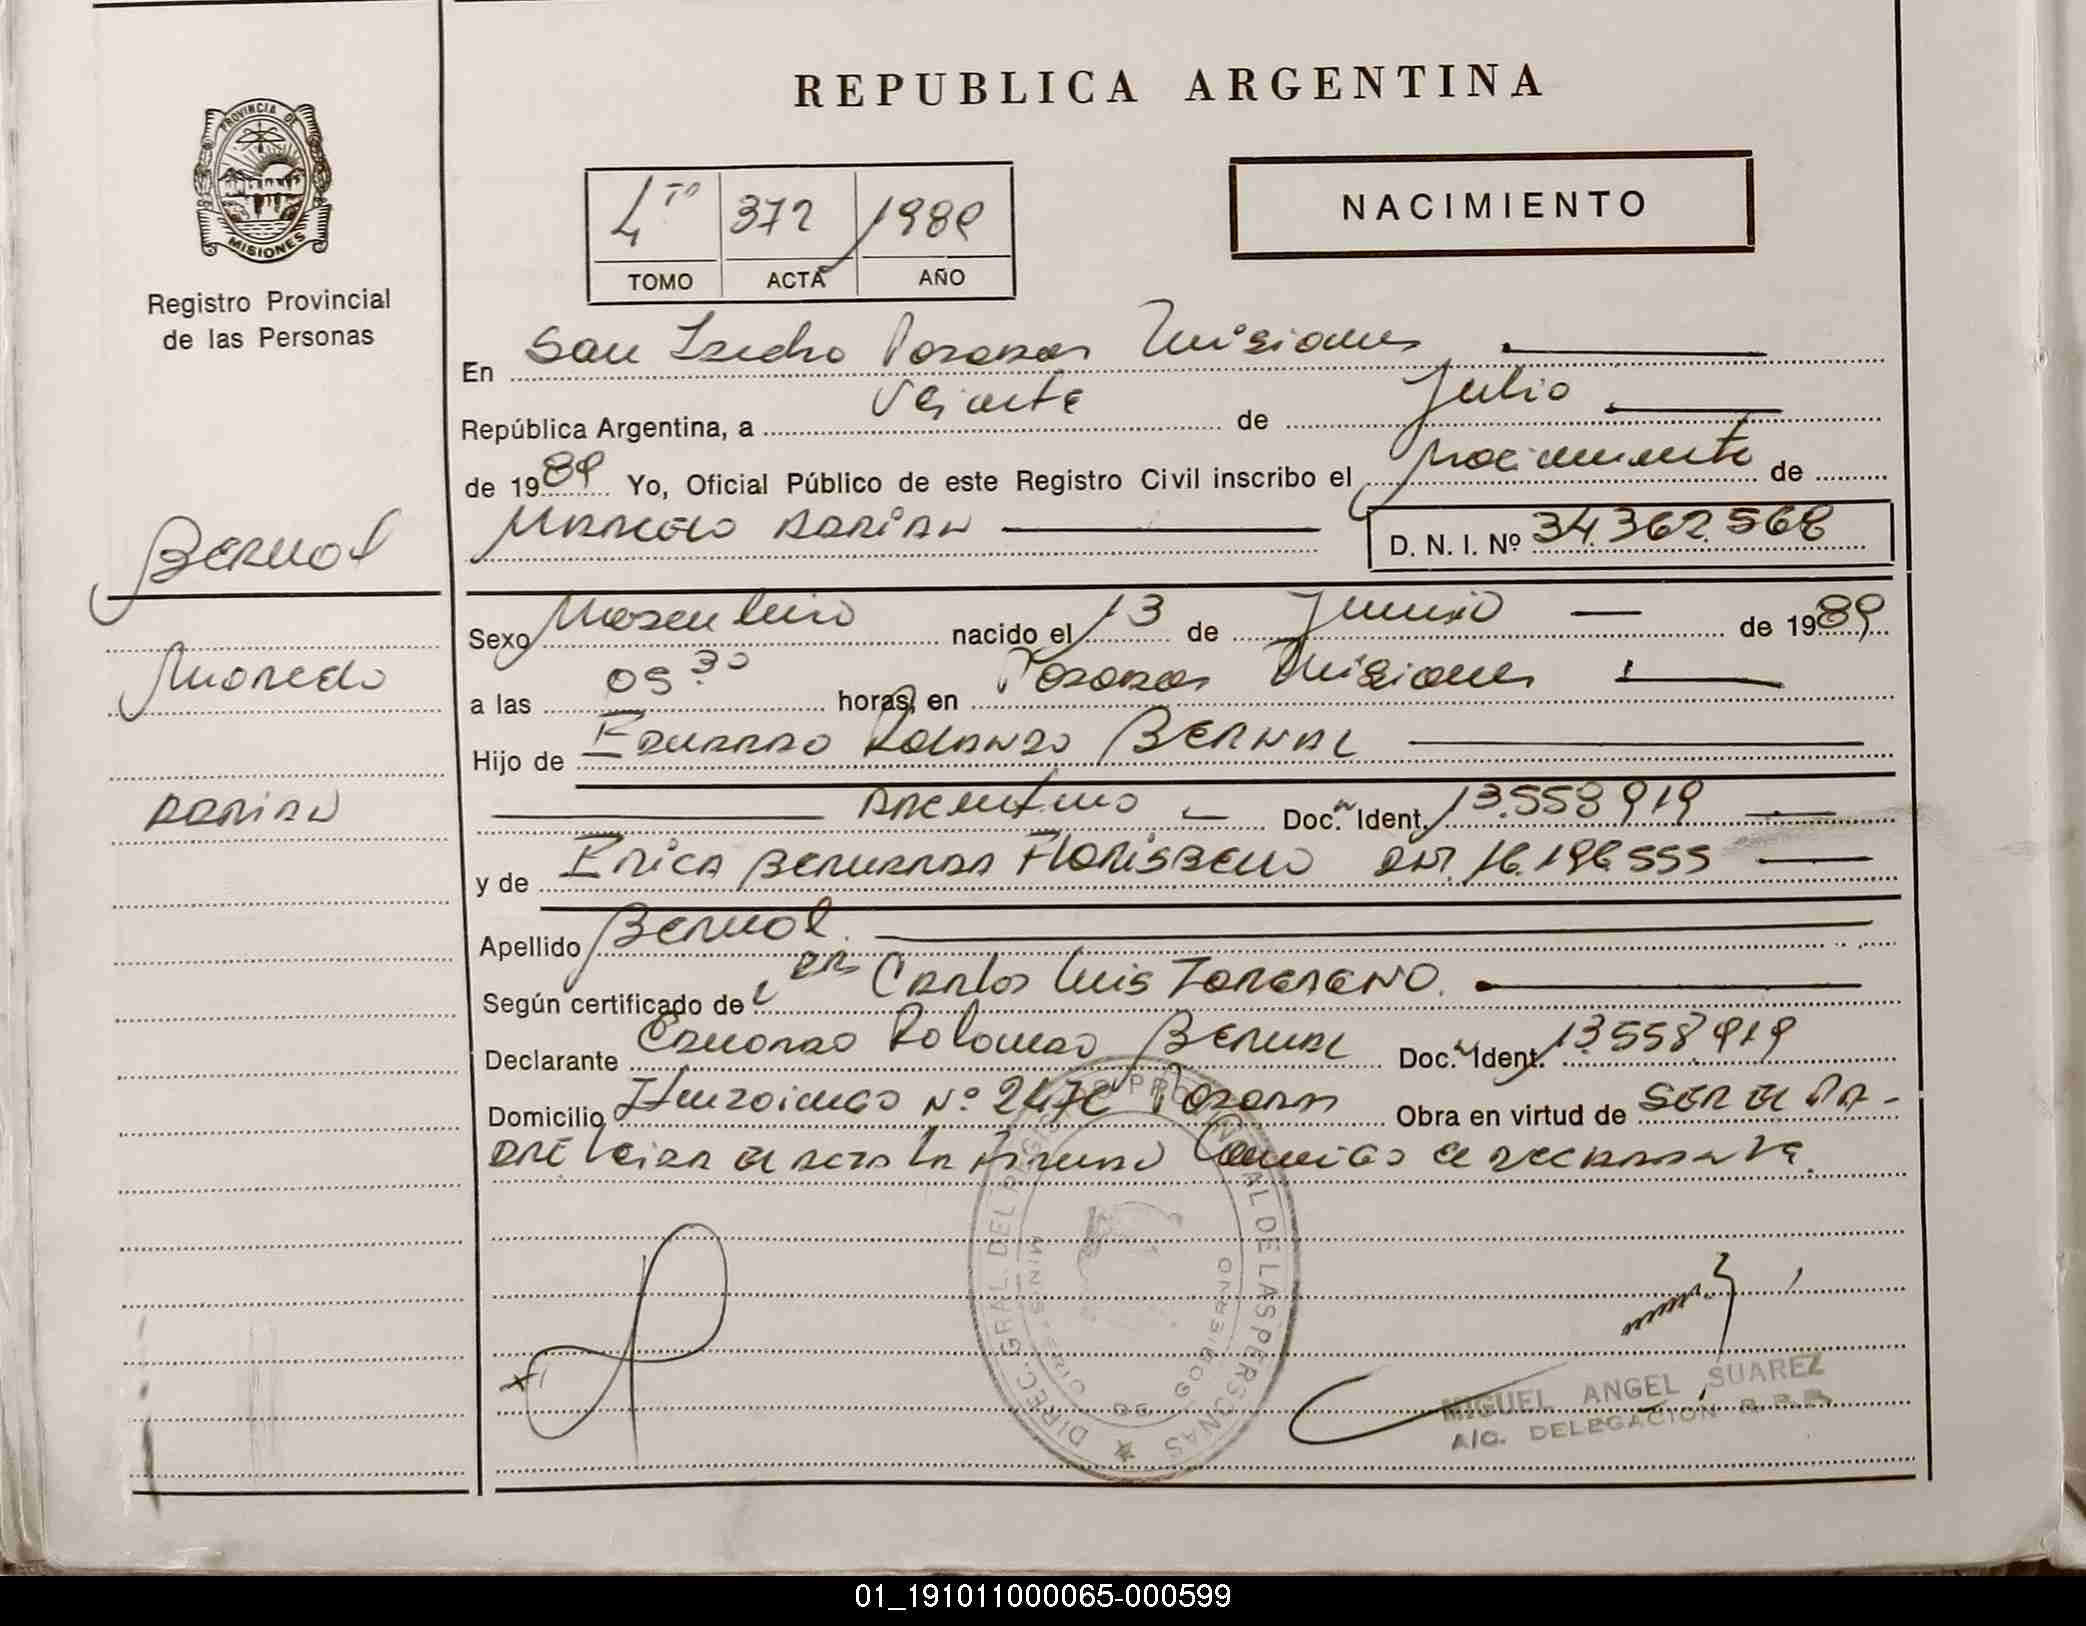 REPUBLICA ARGENTINA
PROVINCIA DE
MISIONES
Registro Provincial
de las Personas
4to 372 1989
TOMO ACTA AÑO
NACIMIENTO
En San Isidro Posadas Misiones
República Argentina, a Veinte de Julio
de 1989 Yo, Oficial Público de este Registro Civil inscribo el nacimiento de
Marcelo Adrian D. N. I. Nº 34.362.568
Bernal
Marcelo
Adrian
Sexo Masculino nacido el 13 de Junio de 1989
a las 05.30 horas, en Posadas Misiones
Hijo de Eduardo Rolando BERNAL
Argentino Doc. Ident. 13.558919
y de Erica Bernarda Florisbello DNI. 16.196.555
Apellido Bernal.
Según certificado de Dr Carlos Luis
Declarante Eduardo Rolando Bernal Doc. Ident. 13.558.919
Domicilio Nº Posadas Obra en virtud de ser el pa-
dre Leida el acta la firma Conmigo el declarante.
DIREC. GRAL. DEL REGISTRO PROVINCIAL DE LAS PERSONAS
MINISTERIO DE GOBIERNO
MIGUEL ANGEL SUAREZ
A/C. DELEGACION R.P.P.
01_191011000065-000599